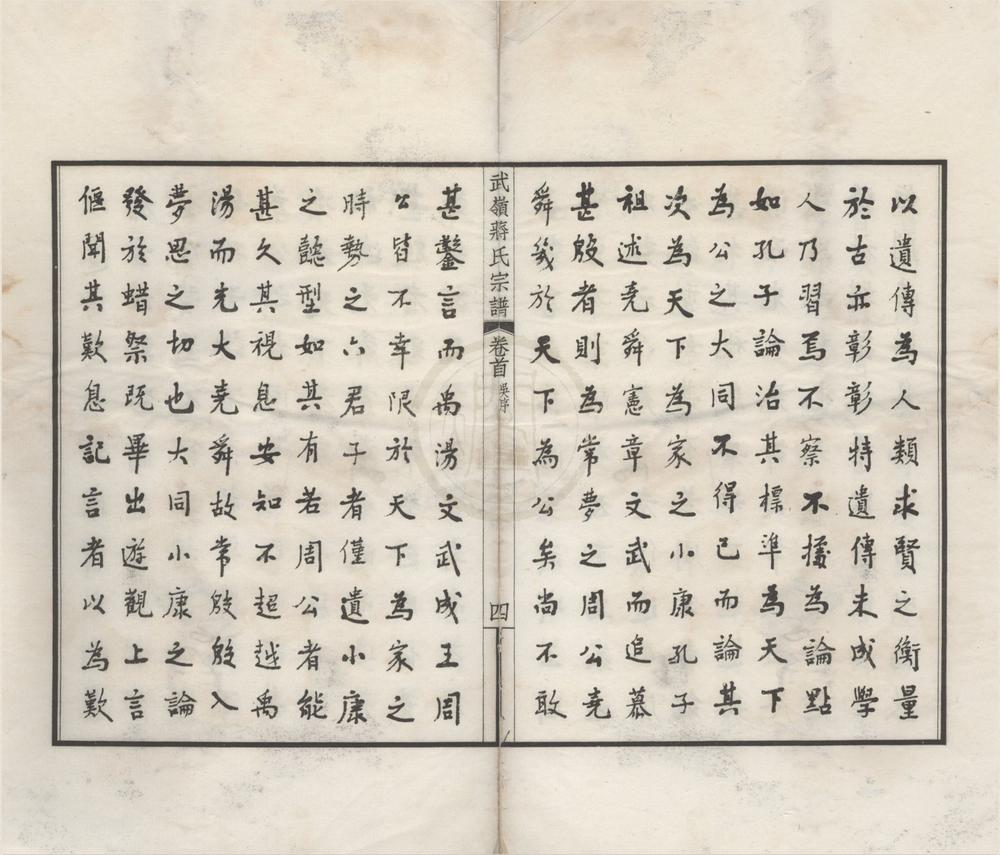 以遺傳為人類求賢之衡量
於古亦彰彰特遺傳未成學
人乃習焉不察不援為論點
如孔子論治其標準為天下
為公之大同不得已而論其
次為天下為家之小康孔子
祖述堯舜憲章文武而追慕
甚殷者則為常夢之周公堯
舜幾於天下為公矣尚不敢
武嶺蔣氏宗譜 卷首 吳序 四
甚鑿言而禹湯文武成王周
公皆不幸限於天下為家之
時勢之六君子者僅遺小康
之懿型如其有若周公者能
甚久其視息安知不超越禹
湯而先大堯舜故常殷殷入
夢思之切也大同小康之論
發於蜡祭既畢出遊觀上言
偃聞其歎息記言者以為歎